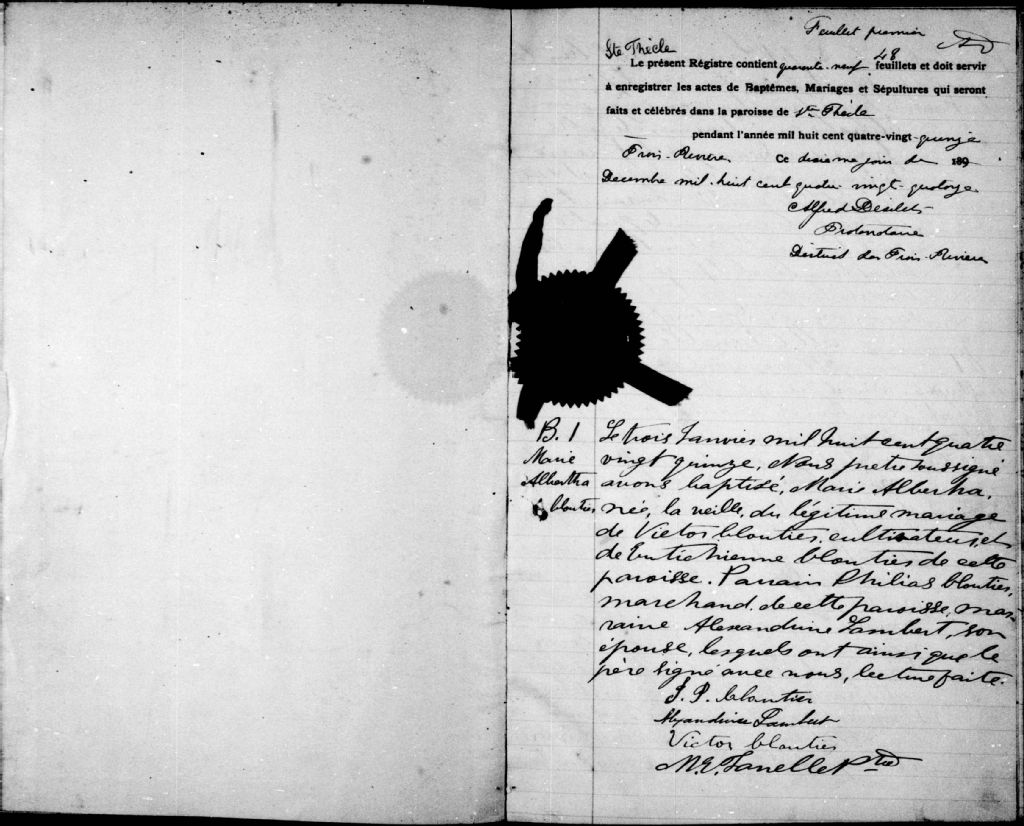 Feuillet premier
AD
Ste Thècle
48
Le présent Régistre contient quarante-neuf feuillets et doit servir
à enregistrer les actes de Baptêmes, Mariages et Sépultures qui seront
faits et célébrés dans la paroisse de Ste Thècle
pendant l'année mil huit cent quatre-vingt-quinze
Trois-Rivières Ce dixième jour de 189
Decembre mil-huit cent quatre-vingt-quatorze
Alfred Désilets
Protonotaire
District des Trois-Rivières
B. 1
Marie
Albertha
Cloutier
Le trois Janvier mil huit cent quatre
vingt quinze, Nous prêtre soussigné
avons baptisé, Marie Albertha,
née, la veille, du légitime mariage
de Victor Cloutier, cultivateur, et
de Eutichienne Cloutier de cette
paroisse. Parrain Philias Cloutier,
marchand, de cette paroisse, mar-
raine Alexandrine Lambert, son
épouse, lesquels ont ainsi que le
père signé avec nous, lecture faite.
J. P. Cloutier
Alexandrine Lambert
Victor Cloutier
M. E. Janelle Ptre